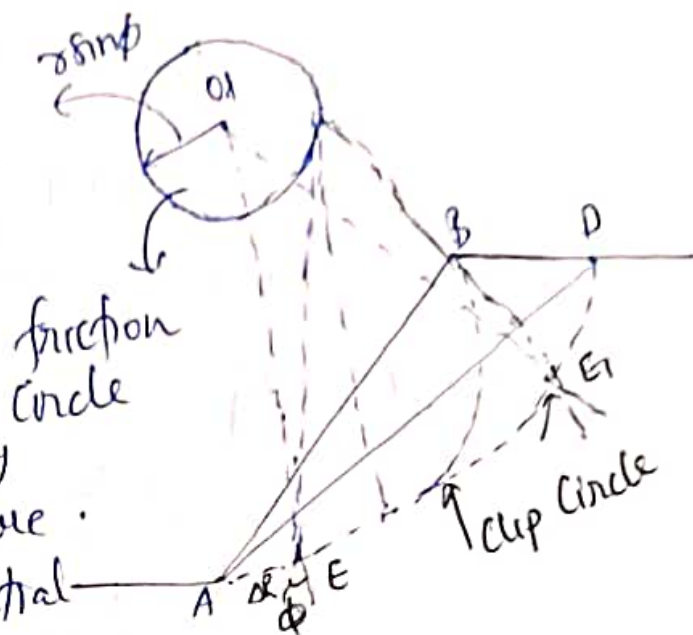 r sinφ
O1
B
D
friction
Circle
E1
Clip Circle
tial
A
E
φ